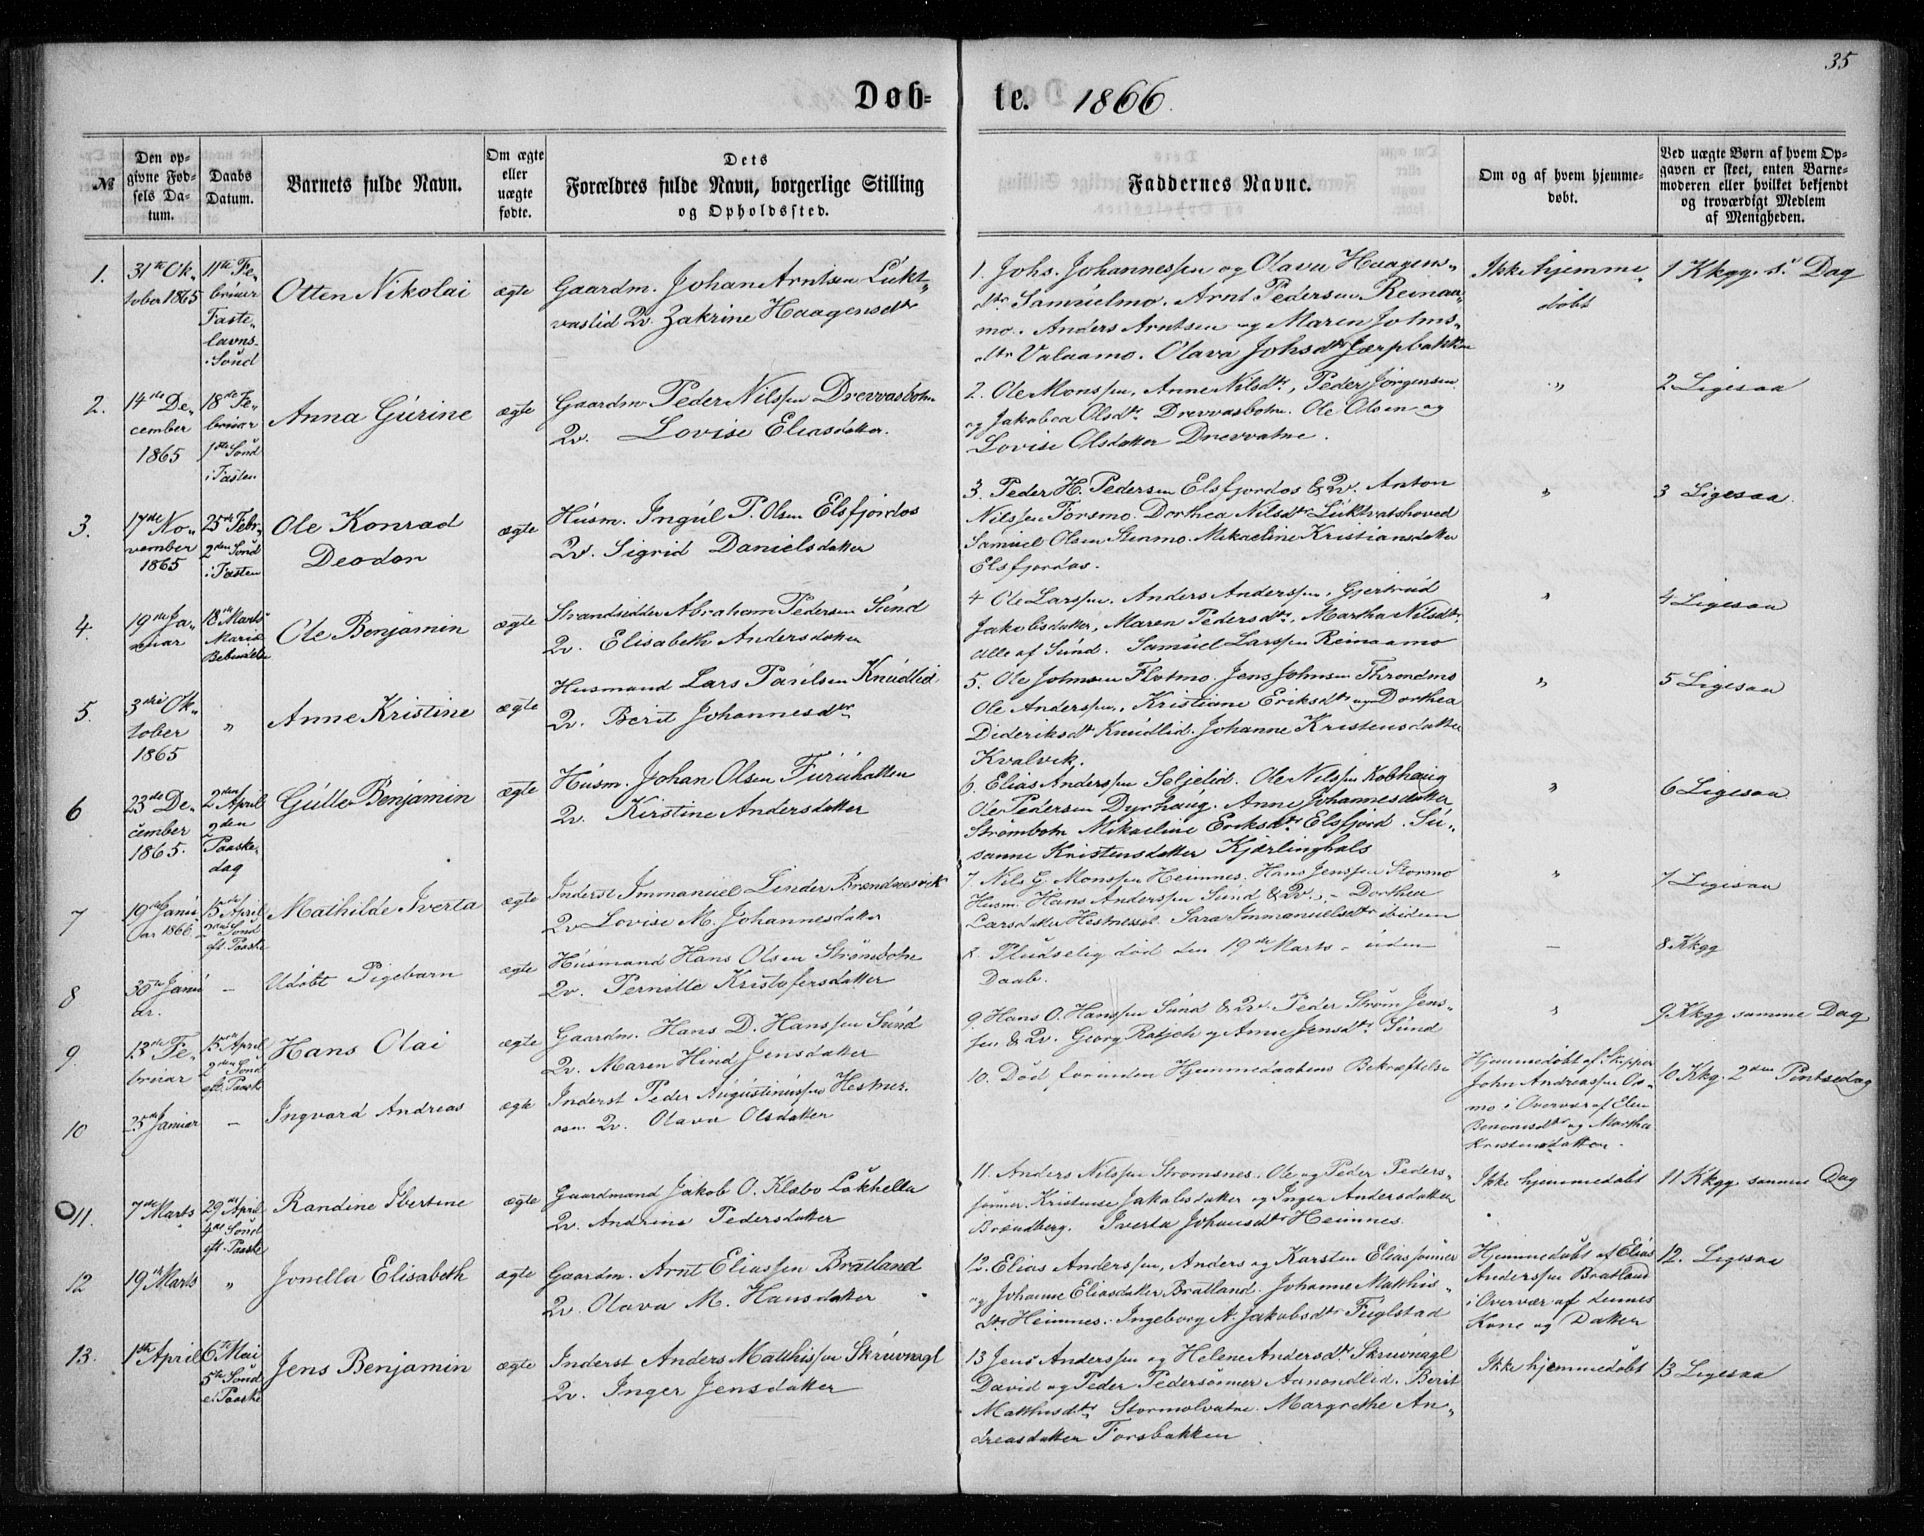 35
Døb-
te. 1866.
№
Den op-
givne Fød-
sels Da-
tum.
Daabs
Datum.
Barnets fulde Navn.
Om ægte
eller
uægte
fødte.
Dets
Forældres fulde Navn, borgerlige Stilling
og Opholdssted.
Faddernes Navne.
Om og af hvem hjemme-
døbt.
Ved uægte Børn af hvem Op-
gaven er skeet, enten Barne-
moderen eller hvilket bekjendt
og troværdigt Medlem
af Menigheden.
1.
31te Ok-
tober 1865
11te Fe-
bruar
Faste-
lavns.
Sønd
Otten Nikolai
ægte
Gaardm. Johan Arntsen Lukt-
vaslid Qv. Zakrine Haagensdtr
1. Johs. Johannessen og Olava Haagens-
dtr Samuelmo. Arnt Pedersen Reinaa-
mo. Anders Arntsen og Maren Johns-
dtr Valaamo. Olava Johsdtr Jærpbakken
Ikke hjemme
døbt
1 Kkgg. s. Dag
2.
14de De-
cember
1865
18de Fe-
bruar
1ste Sønd
i Fasten
Anna Gurine
ægte
Gaardm Peder Nilssen Drevvasbotn
Qv. Lovise Eliasdatter.
2. Ole Monssen, Anne Nilsdtr, Peder Jørgensen
og Jakobea Olsdtr Drevvasbotn. Ole Olsen og
Lovise Olsdatter Drevvatne.
"
2 Ligesaa
3.
17de No-
vember
1865
25de Febr.
2den Sønd
i Fasten
Ole Konrad
Deodor
ægte
Husm. Ingul P. Olsen Elsfjordos
Qv. Sigrid Danielsdatter
3. Peder H. Pedersen Elsfjordos & Qv. Anton
Nilssen Forsmo. Dorthea Nilsdtr Luktvatshoved
Samuel Olsen Stenmo. Mekaeline Kristiansdatter
Elsfjordos.
"
3 Ligesaa.
4.
19de Ja-
nuar
18de Marts
Mariæ
Bebudelse
Ole Benjamin
ægte
Strandsidder Abraham Pedersen Sund
Qv. Elisabeth Andersdatter
4 Ole Larssen. Anders Anderssen, Gjertrud
Jakobsdatter, Maren Pedersdtr, Martha Nilsdtr.
alle af Sund. Samuel Larssen Reinaamo
"
4 Ligesaa
5.
3die Ok-
tober
1865
"
Anne Kristine
ægte
Husmand Lars Paulsen Knudlid
Qv. Berit Johannesdtr
5. Ole Johnsen Flotmo. Jens Johnsen Throndmo
Ole Anderssen, Kristiane Eriksdtr og Dorthea
Dideriksdtr Knudlid. Johanne Kristensdatter
Kvalvik.
"
5 Ligesaa
6
23de De-
cember
1865.
2den April
2den
Paaske-
dag
Gulle Benjamin
ægte
Husm. Johan Olsen Furuhatten
Qv. Kirstine Andersdatter
6. Elias Anderssen Seljelid. Ole Nilssen Kobhaug
Ole Pedersen Dyrhaug. Anne Johannesdatter
Strømbotn Mikaeline Eriksdtr Elsfjord. Su-
sanne Kristensdatter Kjærlinghals
"
6 Ligesaa
7
19de Janu
ar 1866.
15de April
2den Sønd
eft. Paaske
Mathilde Iverta
ægte
Inderst Immanuel Linder Brændnesvik
Qv Lovise M. Johannesdatter
7 Nils G. Monssen Heimnes. Hans Jenssen Stormo
Husm. Hans Anderssen Sund & Qv. - Dorthea
Larsdatter Hestnessel. Sara Immanuelsdtr ibidem
"
7 Ligesaa
8
30te Janu
ar.
-
Udøbt Pigebarn
ægte
Husmand Hans Olsen Strømbotn
Qv. Pernille Kristofersdatter
8. Pludselig død den 19de Marts - uden
Daab.
-
8 Kkgg
9
13de Fe-
bruar
15de April
2den Sønd
eft. Paask
Hans Olai
ægte
Gaardm. Hans D. Hanssen Sund
Qv. Maren Hind Jensdatter
9. Hans O. Hanssen Sund & Qv. Peder Strøm Jens-
sen & Qv. Georg Rasch og Anne Jensdtr Sund
"
9 Kkgg samme Dag
10
25de Januar
-
Ingvard Andreas
ægte
Inderst Peder Augustinussen Hestnes.
osen. Qv. Olava Olsdatter
10. Død forinden Hjemmedaabens Bekræftelse
Hjemmedøbt af Skipper
John Andreassen Os-
mo i Overvær af Elen
Benonisdtr og Martha
Kristensdatter.
10 Kkg. 2den Pintsedag
11.
7de Marts
29de April
4de Sønd
eft. Paaske
Randine Ibertine
ægte
Gaardmand Jakob O. Klæbo Løkhella
Qv. Andrine Pedersdatter
11. Anders Nilssen Strømsnes. Ole og Peder Peders-
sønner. Kristense Jakobsdatter og Inger Andersdatter
Brændberg. Iverta Johansdtr Heimnes.
Ikke hjemmedøbt
11 Kkgg samme Dag
12
19de Marts
"
Jonella Elisabeth
ægte
Gaardm. Arnt Eliassen Bratland
Qv. Olava M. Hansdatter
12. Elias Anderssen, Anders og Karsten Eliassønner
og Johanne Eliasdatter Bratland. Johanne Matthis-
dtr Heimnes. Ingeborg A. Jakobsdtr Fuglstad
Hjemmedøbt af Elias
Anderssen Bratland
i Overvær af dennes
Kone og Datter
12. Ligesaa
13.
1ste April
6te Mai
5te Sønd
e. Paaske
Jens Benjamin
ægte
Inderst Anders Matthissen Skruvnagl
Qv. Inger Jensdatter
13 Jens Anderssen og Helene Andersdtr Skruvnagl
David og Peder Pedersønner Aanondlid. Berit
Matthisdtr Stormolvatne. Margrethe An-
dreasdatter Forsbakken
Ikke hjemmedøbt
13 Ligesaa